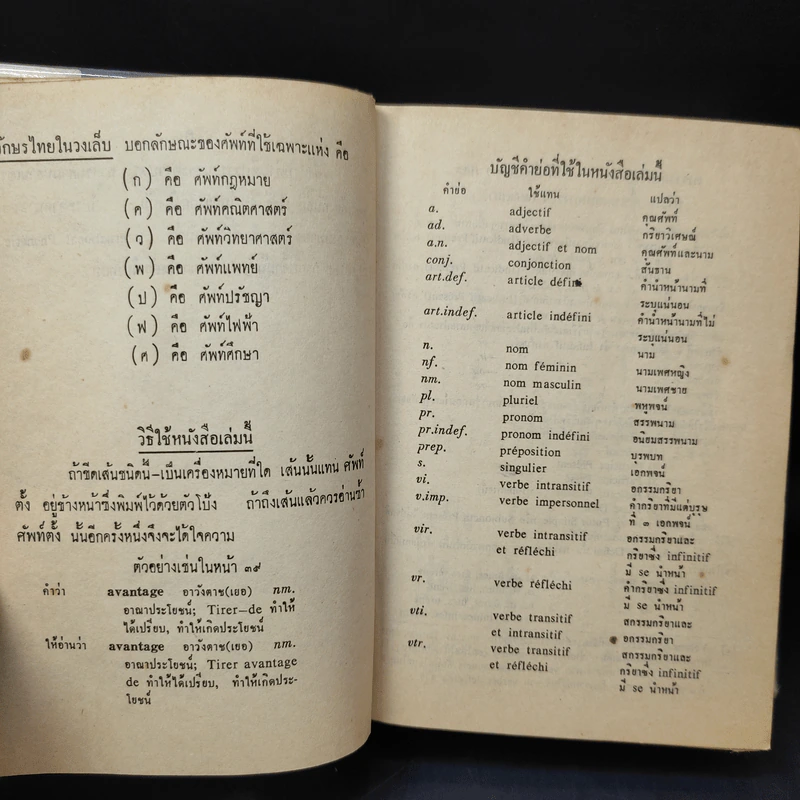 อักษรไทยในวงเล็บ บอกลักษณะของศัพท์ที่ใช้เฉพาะแห่ง คือ
(ก) คือ ศัพท์กฎหมาย
(ค) คือ ศัพท์คณิตศาสตร์
(ว) คือ ศัพท์วิทยาศาสตร์
(พ) คือ ศัพท์แพทย์
(ป) คือ ศัพท์ปรัชญา
(ฟ) คือ ศัพท์ไฟฟ้า
(ศ) คือ ศัพท์ศึกษา
วิธีใช้หนังสือเล่มนี้
ถ้าขีดเส้นชนิดนี้–เป็นเครื่องหมายที่ใด เส้นนั้นแทน ศัพท์
ตั้ง อยู่ข้างหน้าซึ่งพิมพ์ไว้ด้วยตัวโป้ง ถ้าถึงเส้นแล้วควรอ่านซ้ำ
ศัพท์ตั้ง นั้นอีกครั้งหนึ่งจึงจะได้ใจความ
ตัวอย่างเช่นในหน้า ๓๙
คำว่า avantage อาวังตาช(เยอ) nm.
อาณาประโยชน์; Tirer–de ทำให้
ได้เปรียบ, ทำให้เกิดประโยชน์
ให้อ่านว่า avantage อาวังตาช(เยอ) nm.
อาณาประโยชน์; Tirer avantage
de ทำให้ได้เปรียบ, ทำให้เกิดประ-
โยชน์
บัญชีคำย่อที่ใช้ในหนังสือเล่มนี้
คำย่อ ใช้แทน แปลว่า
a. adjectif คุณศัพท์
ad. adverbe กริยาวิเศษณ์
a.n. adjectif et nom คุณศัพท์และนาม
conj. conjonction สันธาน
art.def. article défini คำนำหน้านามที่
ระบุแน่นอน
art.indef. article indéfini คำนำหน้านามที่ไม่
ระบุแน่นอน
n. nom นาม
nf. nom féminin นามเพศหญิง
nm. nom masculin นามเพศชาย
pl. pluriel พหูพจน์
pr. pronom สรรพนาม
pr.indef. pronom indéfini อนิยมสรรพนาม
prep. préposition บุรพบท
s. singulier เอกพจน์
vi. verbe intransitif อกรรมกริยา
v.imp. verbe impersonnel คำกริยาที่มีแต่บุรุษ
ที่ ๓ เอกพจน์
vir. verbe intransitif อกรรมกริยาและ
et réfléchi กริยาซึ่ง infinitif
มี se นำหน้า
vr. verbe réfléchi คำกริยาซึ่ง infinitif
มี se นำหน้า
vti. verbe transitif สกรรมกริยาและ
et intransitif อกรรมกริยา
vtr. verbe transitif สกรรมกริยาและ
et réfléchi กริยาซึ่ง infinitif
มี se นำหน้า